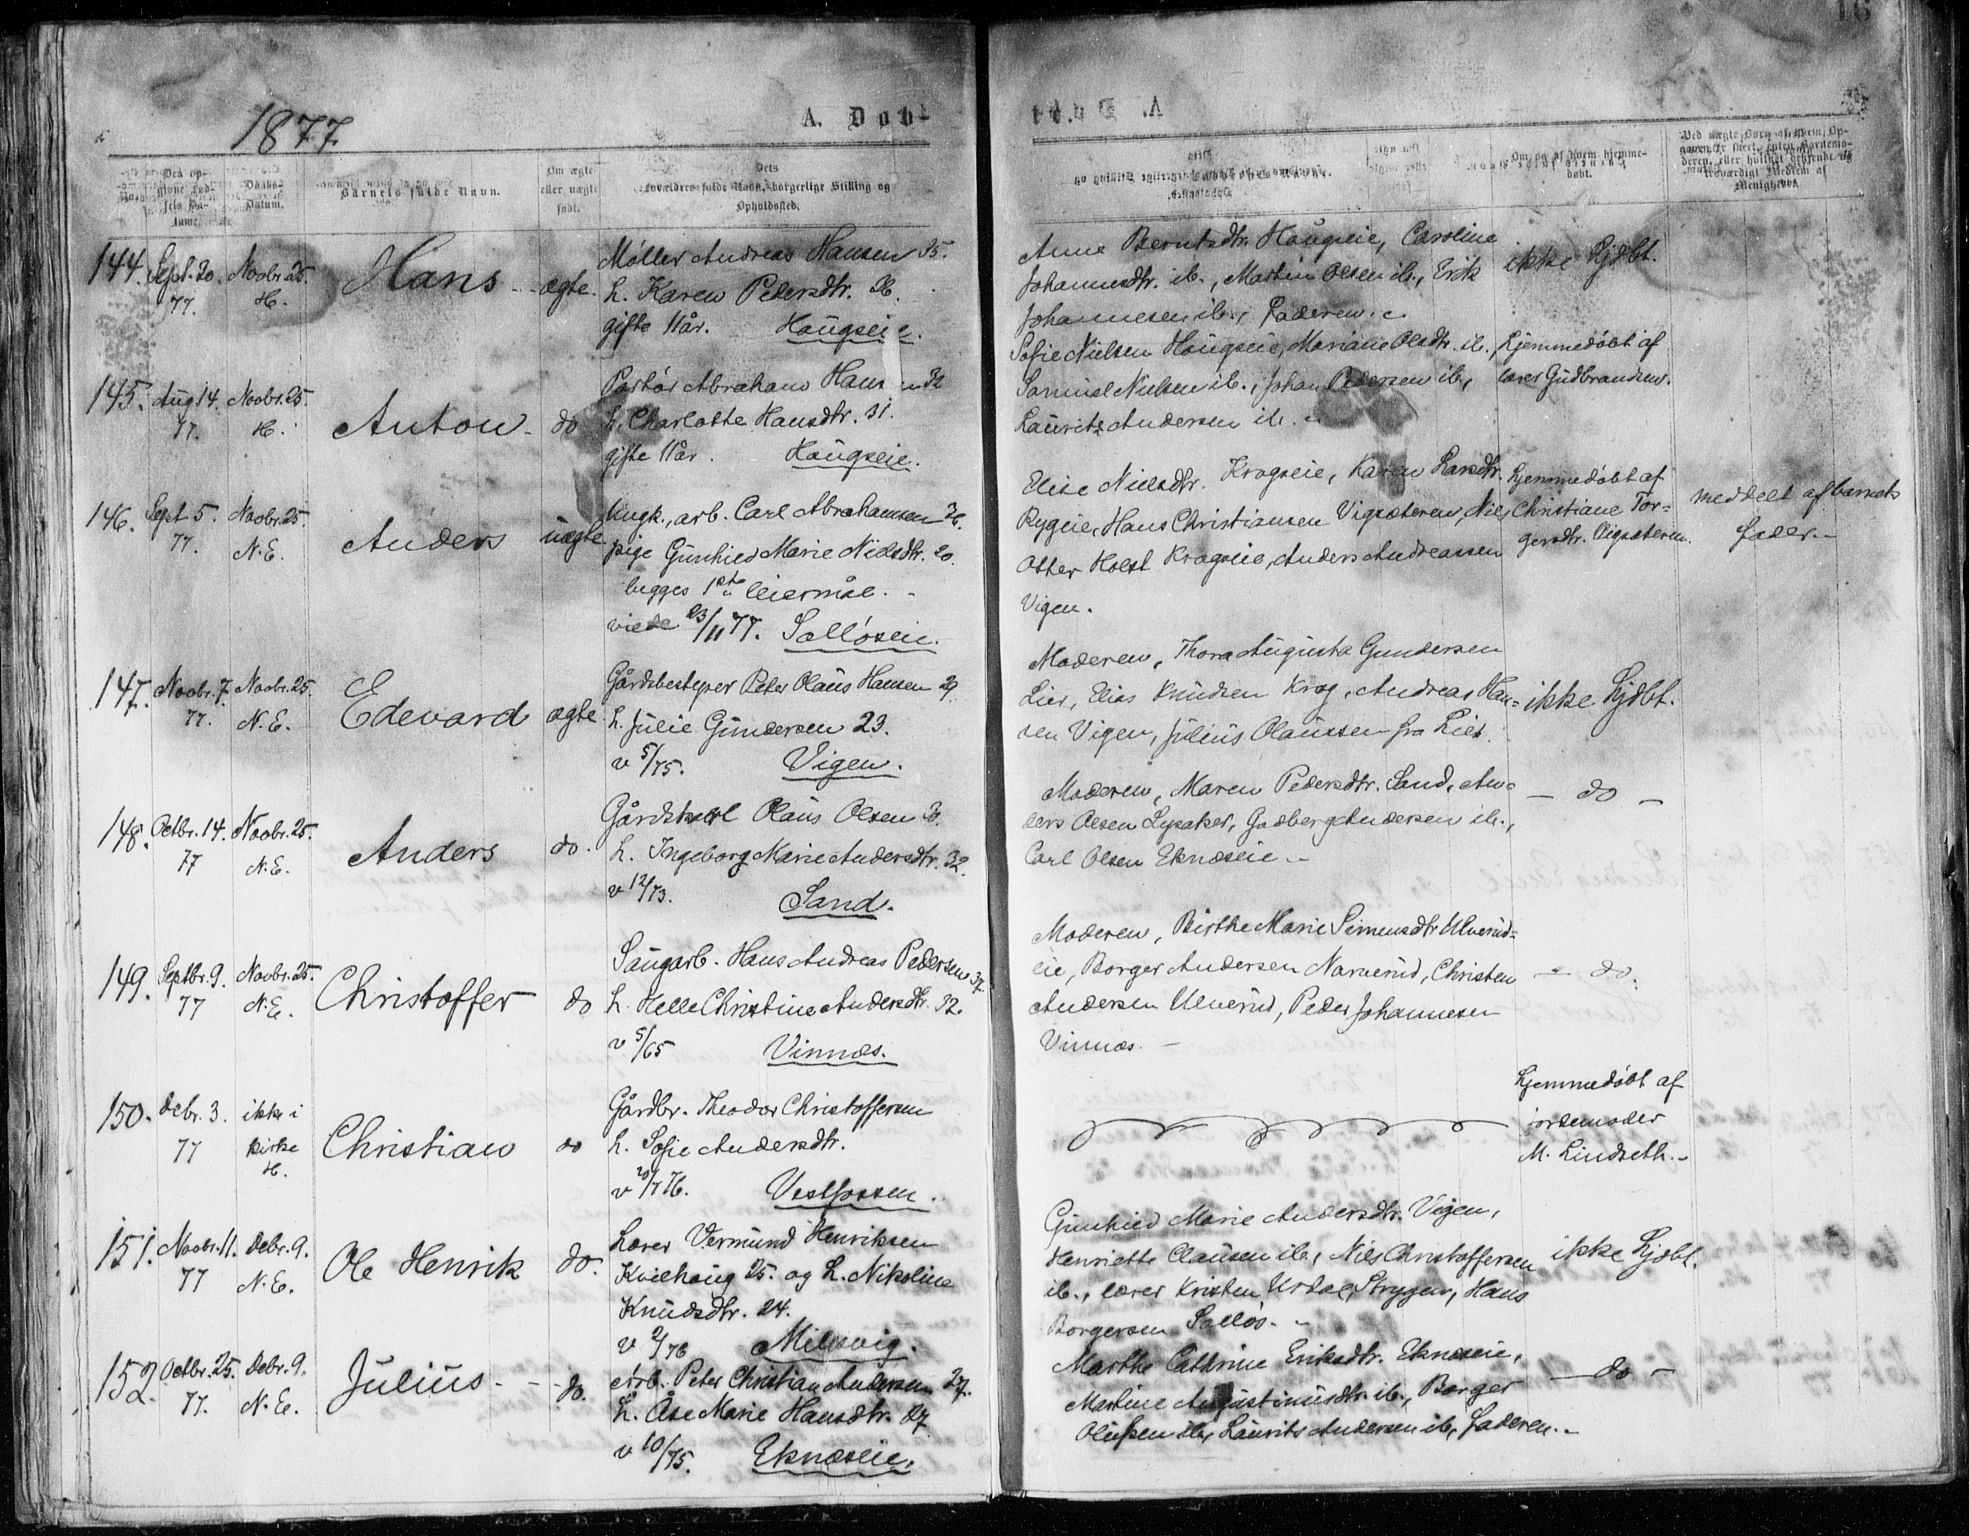 16
1877.
A. Døbt
Ved op-
givne Fød-
sels Da-
tum.
Daabs-
Datum.
Barnets fulde Navn.
Om ægte
eller uægte
født.
Dets
Forældres fulde Navn, borgerlige Stilling og
Opholdssted.
Om og af hvem hjemme-
døbt.
Ved uægte Børn af hvem Op-
gaven er skeet, enten Barnemo-
deren, eller hvilket bekjendt og
troværdigt Medlem af
Menigheden.
144. Sept. 30. 77. Novbr. 25. H. Hans ægte.
Møller Andreas Hansen 35.
h. Karen Pedersdtr. 36.
gifte 11 år. Haugseie.
Anne Berntsdtr. Haugseie, Caroline
Johannesdtr. ib., Martin Olsen ib., Erik
Johannesen ib., Faderen.
ikke Hjdbt.
145. Aug 14. 77. Novbr. 25. H. Anton do
Portør Abraham Hansen 32
h. Charlotte Hansdtr. 31.
gifte 11 år. Haugseie.
Sofie Nielsen Haugseie, Mariane Olsdtr. ib.,
Samuel Nielsen ib., Johan Pedersen ib.,
Laurits Andersen ib.
hjemmedøbt af
lærer Gudbrandsen.
146. Sept 5. 77. Novbr. 25. N.E. Anders uægte
Ungk., arb. Carl Abrahamsen 26.
pige Gunhild Marie Nielsdtr. 20.
begges 1ste leiermål.
viede 23/11 77. Solløseie.
Elise Nielsdtr. Krogseie, Karen Larsdtr.
Rygeie, Hans Christiansen Vigsæteren, Nils
Otter Holst Krogseie, Anders Andreassen
Vigen.
hjemmedøbt af
Christiane Tor-
gersdtr. Vigsæteren.
meddelt af barnets
fader.
147. Novbr. 7. 77. Novbr. 25. N.E. Edevard ægte
Gårdsbestyrer Peter Olaus Hansen 29.
h. Julie Gundersen 23.
v 5/75. Vigen.
Moderen, Thora Augusta Gundersen
Lier, Elias Knudsen Krog, Andreas Han-
sen Vigen, Julius Olaussen fra Lier.
ikke Hjdbt.
148. Octbr. 14. 77 Novbr. 25. N.E. Anders do.
Gårdskarl Olaus Olsen 30.
h. Ingeborg Marie Andersdtr. 32.
v 12/73. Sand.
Moderen, Maren Pedersdtr. Sand, An-
ders Olsen Lysaker, Gudberg Andersen ib.,
Carl Olsen Eknæseie.
— do —
149. Septbr. 9. 77 Novbr. 25. N.E. Christoffer do
Saugarb. Hans Andreas Pedersen 37.
h. Helle Christine Andersdtr. 32.
v 5/65 Vinnæs.
Moderen, Birthe Marie Simensdtr Ulverud-
eie, Borger Andersen Narverud, Christen
Andersen Ulverud, Peder Johannesen
Vinnæs.
— do.
150. Debr. 3. 77 ikke i kirke H. Christian do
Gårdbr. Theodor Christoffersen
h. Sofie Andersdtr.
v 20/7 76. Vestfossen.
hjemmedøbt af
jordemoder
M. Lindseth.
151. Novbr. 11. 77 Debr. 9. N.E. Ole Henrik do.
Lærer Vermund Henriksen
Kvilhaug 25. og h. Nikoline
Knudsdtr. 24.
v 2/76 Milesvig.
Gunhild Marie Andersdtr. Vigen,
Henriette Clausen ib., Nils Christoffersen
ib., lærer Kristen Urdal, Strygen, Hans
Borgersen Solløs.
ikke Hjdbt.
152. Octbr. 25. 77. Debr. 9. N.E. Julius do.
Arb. Peter Christian Andersen 27.
h. Åse Marie Hansdtr. 27
v 10/75. Eknæseie.
Marthe Cathrine Eriksdtr. Eknæseie,
Martine Augustinusdtr. ib., Borger
Olufsen ib., Laurits Andersen ib., Faderen.
— do —